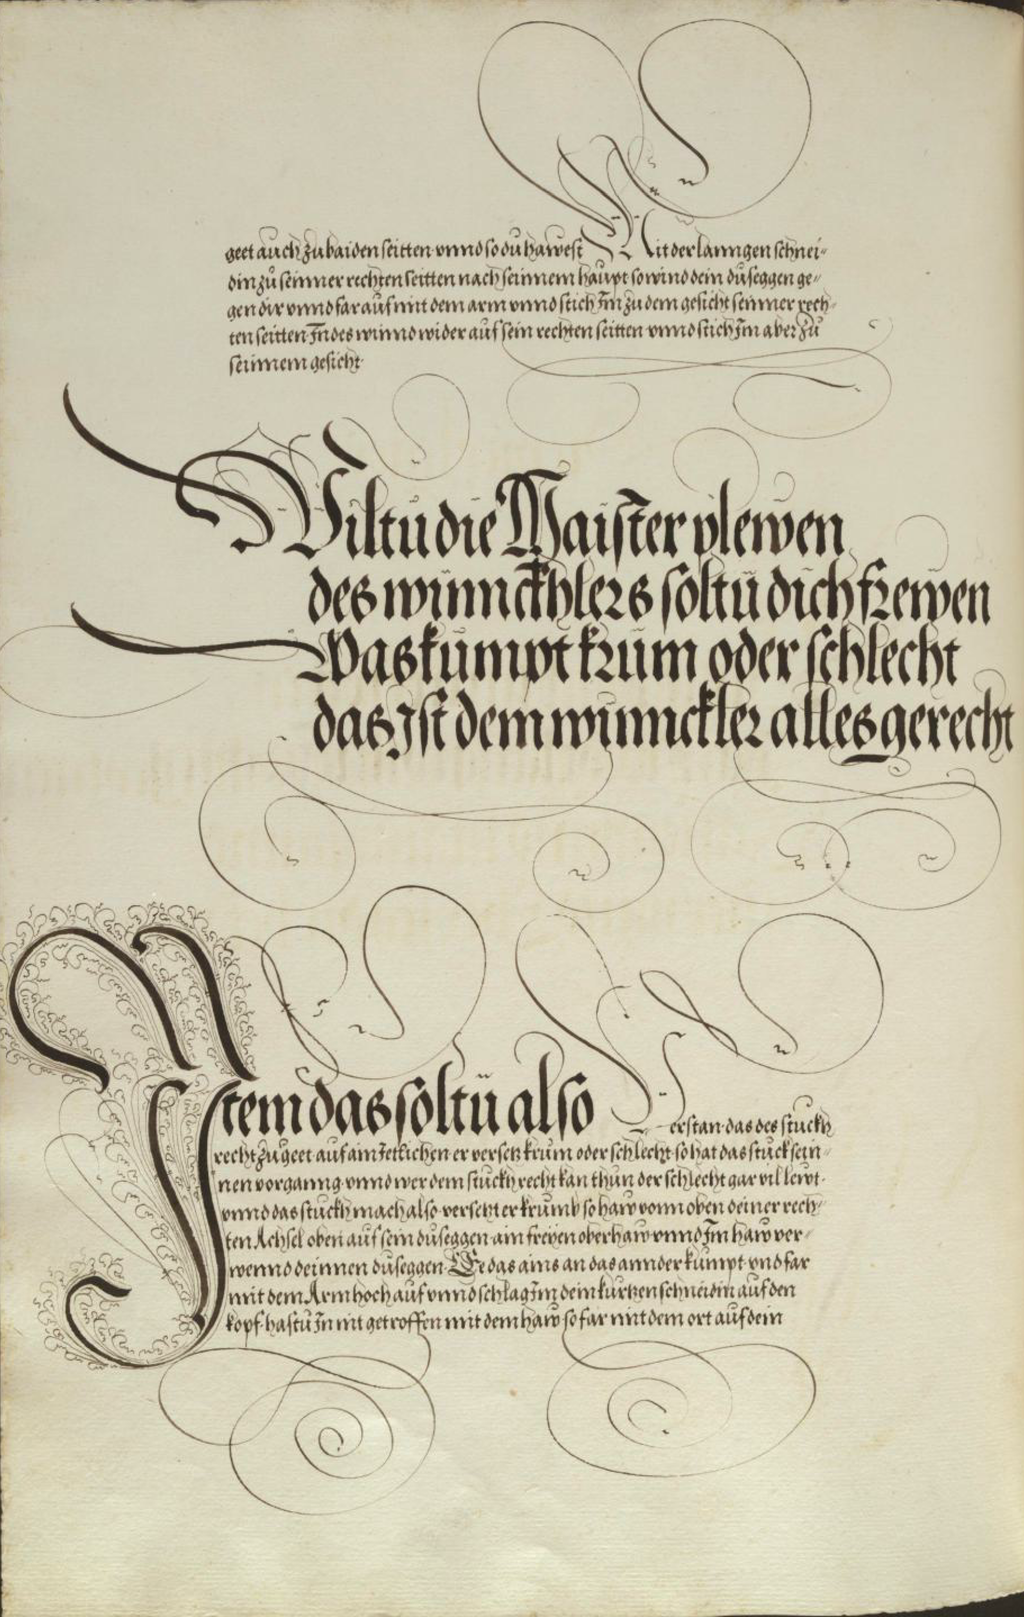 geet auch zu baiden seitten vnnd so du hawest Mit der lanngen schnei-
din zů seinner rechten seitten nach seinnem haupt so wind dein duseggen ge-
gen dir vnnd far auf mit dem arm vnnd stich Jm zu dem gesicht seinner rech-
ten seitten Jndes winnd wider auf sein rechten seitten vnnd stich Jm aber zů
seinnem gesicht
Wiltu die Maister plewen
des winnckhlers soltu dich frewen
Was kumpt krum oder schlecht
das Jst dem winnckler alles gerecht
Jtem das soltu also Verstan das des stuckh
recht zů geet auf ain Jetlichen er versetz krum oder schlecht so hat das stuck sein-
nen vorganng vnnd wer dem stuckh recht kan thun der schlecht gar vil lewt
vnnd das stuckh mach also versetzt er krumb so haw vonn oben deiner rech-
ten Achsel oben auf sein duseggen ain freyen oberhaw vnnd Jm haw ver-
wennd deinnen duseggen Ee das ains an das annder kumpt vnd far
mit dem Arm hoch auf vnnd schlag Jm dein kurtzen schneidin auf den
kopf hastu Jn nit getroffen mit dem haw so far mit dem ort auf dein